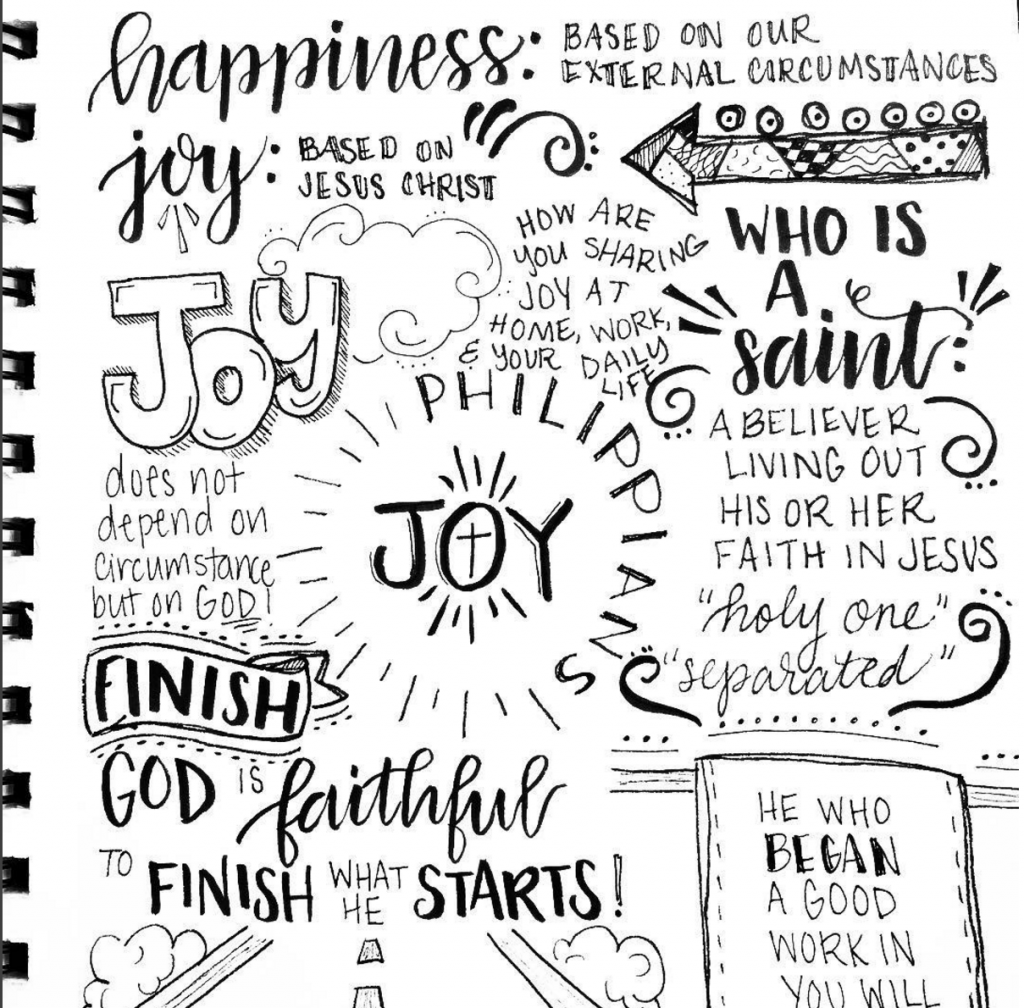 happiness: BASED ON OUR
EXTERNAL CIRCUMSTANCES
joy: BASED ON
JESUS CHRIST
HOW ARE
YOU SHARING
JOY AT
HOME, WORK,
& YOUR DAILY
LIFE
WHO IS
A
saint:
A BELIEVER
LIVING OUT
HIS OR HER
FAITH IN JESUS
"holy one"
"separated"
JOY
does not
depend on
circumstance
but on GOD!
PHILIPPIANS
JOY
FINISH
GOD IS faithful
TO FINISH WHAT HE STARTS!
HE WHO
BEGAN
A GOOD
WORK IN
YOU WILL